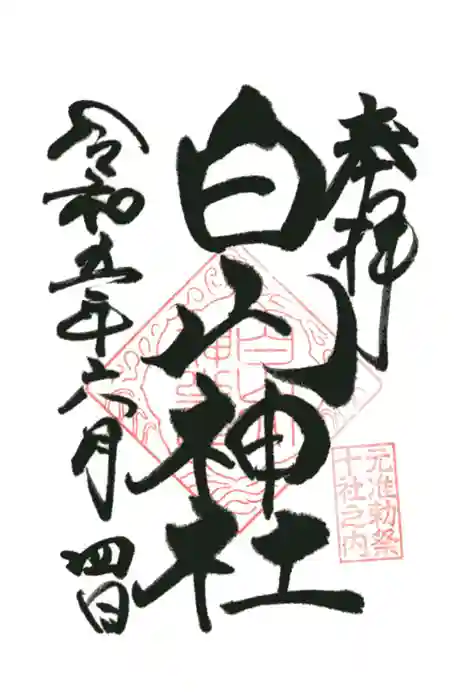 奉拝
白山神社
令和五年六月四日
元准勅祭
十社之内